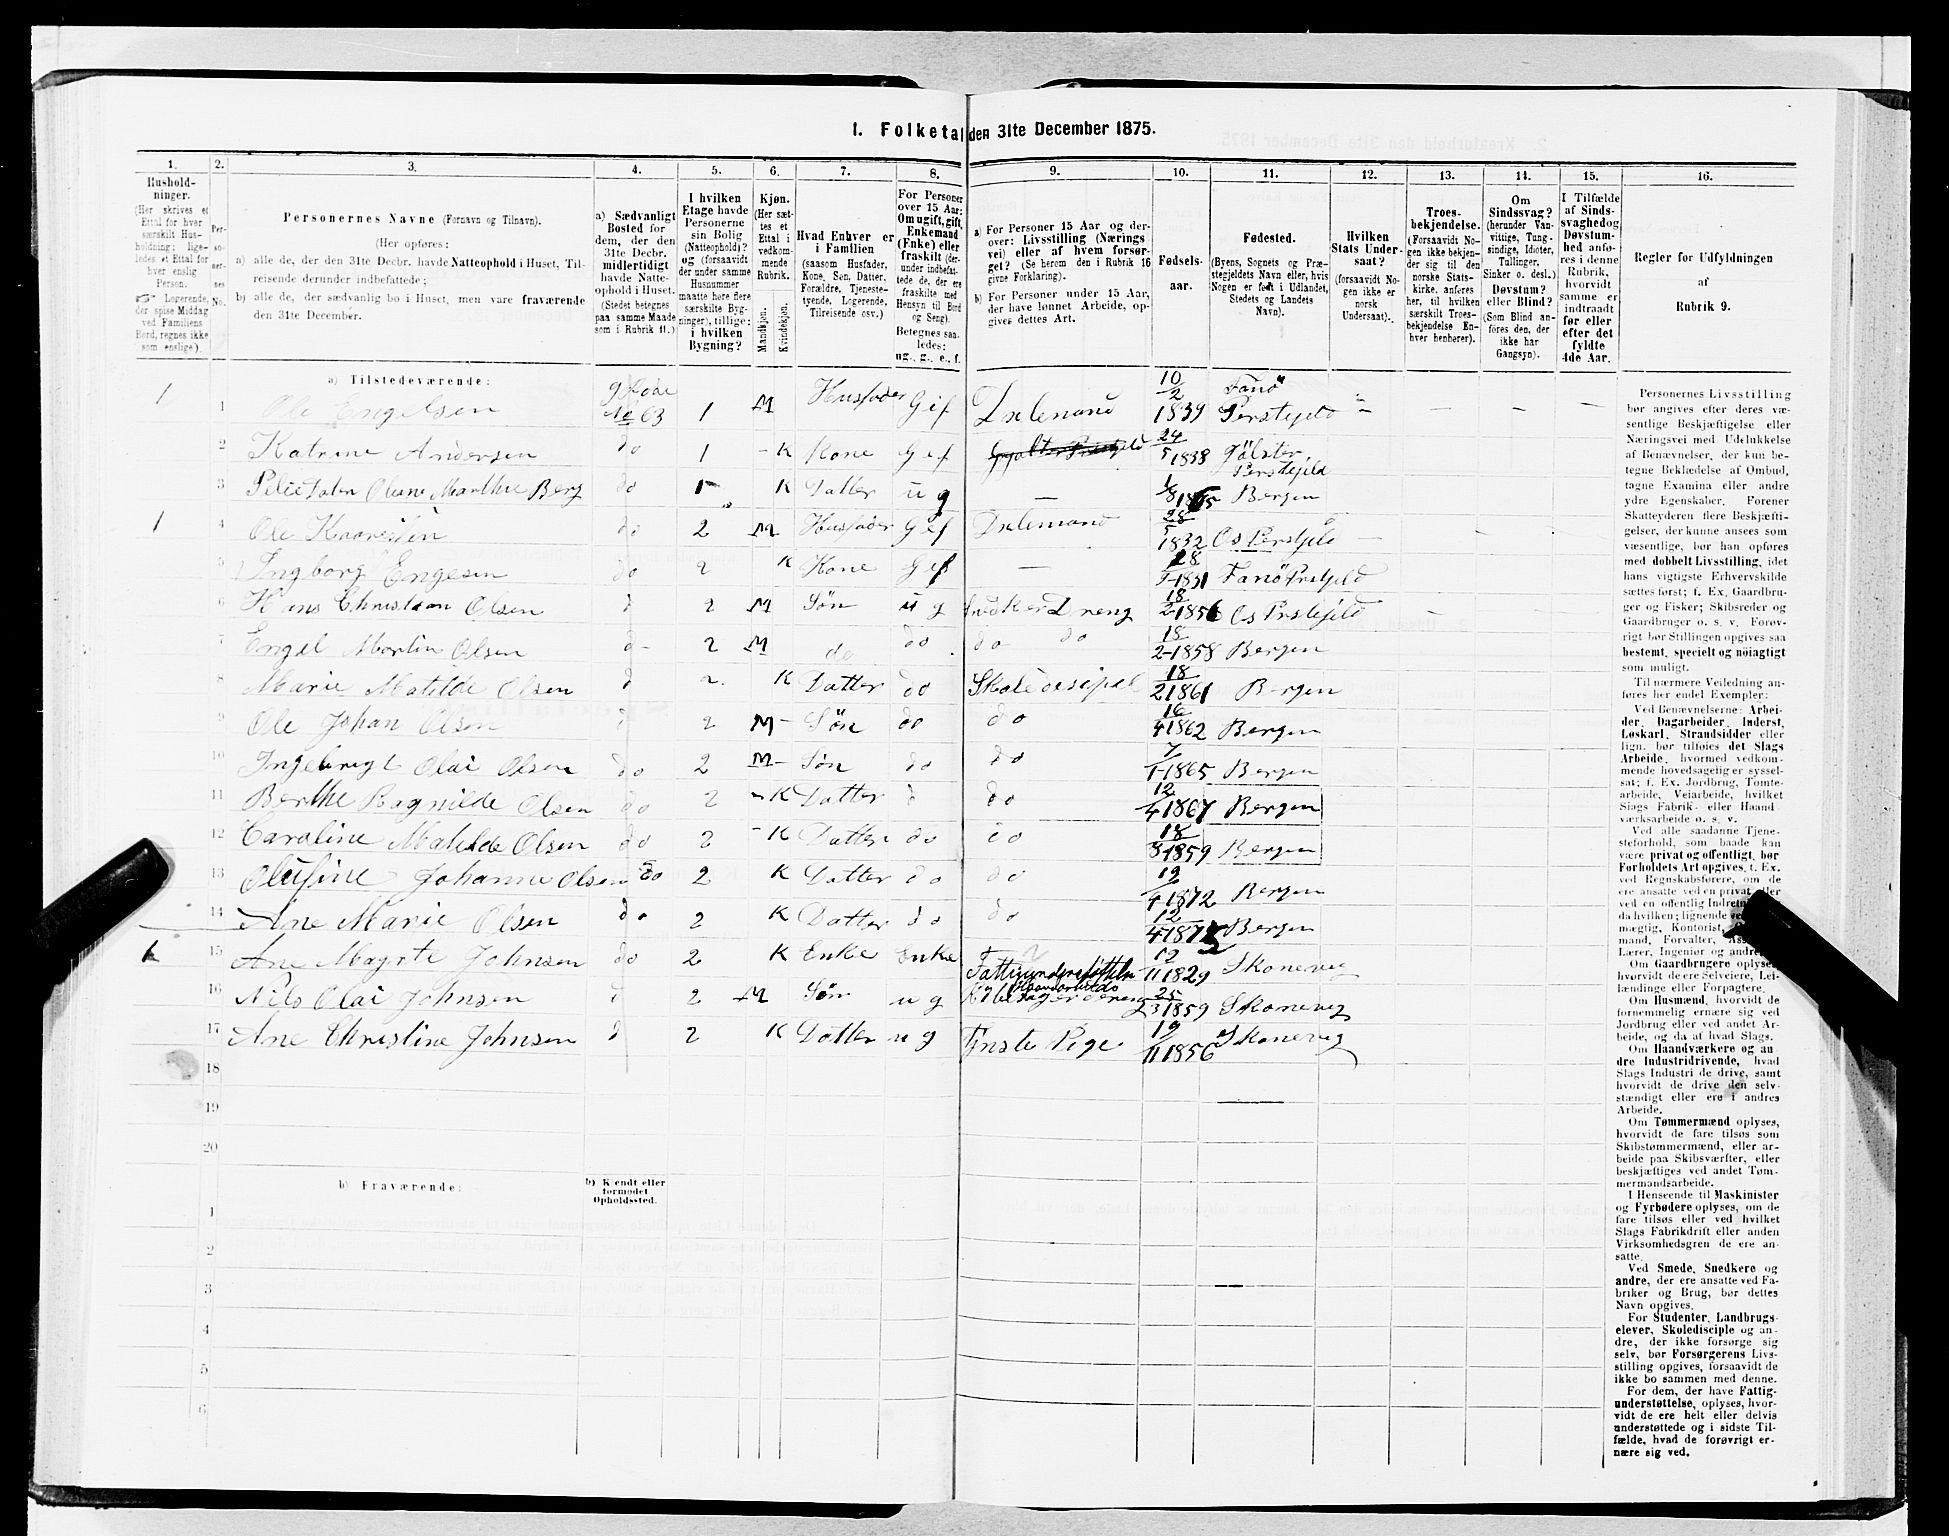 1. Folketal den 31te December 1875.
1.
2.
3.
4.
5.
6.
7.
8.
9.
10.
11.
12.
13.
14.
15.
16.
Hushold-
ninger.
(Her skrives et
Ettal for hver
særskilt Hus-
holdning; lige-
ledes et Ettal for
hver enslig
Person.
☞ Logerende,
der spise Middag
ved Familiens
Bord, regnes ikke
som enslige).
Per-
so-
ner-
nes
No.
Personernes Navne (Fornavn og Tilnavn).
(Her opføres:
a) alle de, der den 31te Decbr. havde Natteophold i Huset, Til-
reisende derunder indbefattede;
b) alle de, der sædvanlig bo i Huset, men vare fraværende
den 31te December.
a) Sædvanligt
Bosted for
dem, der den
31te Decbr.
midlertidigt
havde Natte-
ophold i Huset.
(Stedet betegnes
paa samme Maade
som i Rubrik 11.)
I hvilken
Etage havde
Personerne
sin Bolig
(Natteophold)?
og (forsaavidt
der under samme
Husnummer
maatte høre flere
særskilte Byg-
ninger), tillige:
i hvilken
Bygning?
Kjøn.
(Her sæt-
tes et
Ettal i
vedkom-
mende
Rubrik.
Mandkjøn.
Kvindekjøn.
Hvad Enhver er
i Familien
(saasom Husfader,
Kone, Søn, Datter,
Forældre, Tjeneste-
tyende, Logerende,
Tilreisende osv.)
For Personer
over 15 Aar:
Om ugift, gift,
Enkemand
(Enke) eller
fraskilt (der-
under indbefat-
tede de, der ere
fraskilte med
Hensyn til Bord
og Seng).
Betegnes saa-
ledes:
ug., g., e., f.
a) For Personer 15 Aar og der-
over: Livsstilling (Nærings
vei) eller af hvem forsør-
get? (Se herom den i Rubrik 16
givne Forklaring).
b) For Personer under 15 Aar,
der have lønnet Arbeide, op-
gives dettes Art.
Fødsels-
aar.
Fødested.
(Byens, Sognets og Præ-
stegjeldets Navn eller, hvis
Nogen er født i Udlandet,
Stedets og Landets
Navn).
Hvilken
Stats Under-
saat?
(forsaavidt No-
gen ikke er
norsk
Undersaat).
Troes-
bekjendelse.
(Forsaavidt No-
gen ikke bekjen-
der sig til den
norske Stats-
kirke, anføres
her, til hvilken
særskilt Troes-
bekjendelse En-
hver henhører).
Om
Sindssvag?
(herunder Van-
vittige, Tung-
sindige, Idioter,
Tullinger,
Sinker o. desl.)
Døvstum?
eller Blind?
(Som Blind an-
føres den, der
ikke har
Gangsyn).
I Tilfælde
af Sinds-
svaghed og
Døvstum-
hed anfø-
res i denne
Rubrik,
hvorvidt
samme er
indtraadt
før eller
efter det
fyldte
4de Aar.
Regler for Udfyldningen
af
Rubrik 9.
a) Tilstedeværende:
1 1 Ole Engelsen 9 Rode No 63 1 M Husfader Gif Delemand 10/2 1839 Fanö Perstejeld
2 Katrine Andersen do 1 K Kone Gif 24/5 1838 Gölster Perstejeld
3 Olene Marthe Berg do 1 K Datter u g — 1/8 1865 Bergen
1 4 Ole do 2 M Husfader Gif Delemand 28/5 1832 Os Perstjeld
5 Ingborg Engesen do 2 K Kone Gif — 28 1831 Fanö Prstjeld
6 Hans Christian Olsen d 2 M Søn u g Dreng 18/2 1856 Os Prstejeld
7 Engel Martin Olsen d 2 M do do do do 18/2 1858 Bergen
8 Marie Matilde Olsen d 2 K Datter do Skoledesipel 18/2 1861 Bergen
9 Ole Johan Olsen d 2 M Søn do do 16/4 1862 Bergen
10 Ingebregt Olai Olsen do 2 M Søn do do 7/1 1865 Bergen
11 Berthe Ragnilde Olsen do 2 K Datter d do 12/4 1867 Bergen
12 Caroline Matilde Olsen do 2 K Datter do do 18/8 1859 Bergen
13 Olufine Johanne Olsen do 2 K Datter do do 12/4 1872 Bergen
14 Ane Marie Olsen do 2 K Datter do do 12/4 1875 Bergen
15 Ane Magrte Johnsen do 2 K Enke Enke Fattigunderstøttelse Haandarbeide 12/11 1829 Skonevig
16 Nils Olai Johnsen d 2 M Søn u g 25/3 1859 Skonevig
17 Ane Christine Johnsen d 2 K Datter u g Tjnste Pige 19/11 1856 Skonevig
18
19
20
b) Fraværende:
b) Kjendt eller
formodet
Opholdssted.
1
2
3
4
5
6
Personernes Livsstilling
bør angives efter deres væ-
sentlige Beskjæftigelse eller
Næringsvei med Udelukkelse
af Benævnelser, der kun be-
tegne Beklædelse af Ombud,
tagne Examina eller andre
ydre Egenskaber. Forener
Skatteyderen flere Beskjæfti-
gelser, der kunne ansees som
væsentlige, bør han opføres
med dobbelt Livsstilling, idet
hans vigtigste Erhvervskilde
sættes først; f. Ex. Gaardbru-
ger og Fisker; Skibsreder og
Gaardbruger o. s. v. Forøv-
rigt bør Stillingen opgives saa
bestemt, specielt og nöiagtigt
som muligt.
Til nærmere Veiledning an-
føres her endel Exempler:
Ved Benævnelserne: Arbei-
der, Dagarbeider, Inderst,
Løskarl, Strandsidder eller
lign. bør tilføies det Slags
Arbeide, hvormed vedkom-
mende hovedsagelig er syssel-
sat; f. Ex. Jordbrug, Tomte-
arbeide, Veiarbeide, hvilket
Slags Fabrik- eller Haand-
værksarbeide o. s. v.
Ved alle saadanne Tjene-
steforhold, som baade kan
være privat og offentligt, bør
Forholdets Art opgives, t. Ex.
ved Regnskabsførere, om de
ere ansatte ved en privat eller
ved en offentlig Indretning
da hvilken; lignende
mægtig, Kontorist,
mand, Forvalter,
Lærer, Ingeniør og andre.
Om Gaardbrugere oplyses,
hvorvidt de ere Selveiere, Lei-
lændinge eller Forpagtere.
Om Husmænd, hvorvidt de
fornemmelig ernære sig ved
Jordbrug eller ved andet Ar-
beide, og da af hvad Slags.
Om Haandværkere og an
dre Industridrivende, hvad
Slags Industri de drive, samt
hvorvidt de drive den selv-
stændigt eller ere i andres
Arbeide.
Om Tømmermænd oplyses,
hvorvidt de fare tilsøs som
Skibstømmermænd, eller ar-
beide paa Skibsværfter, eller
beskjæftiges ved andet Tøm-
mermandsarbeide.
I Henseende til Maskinister
og Fyrbødere oplyses, om de
fare tilsøs eller ved hvilket
Slags Fabrikdrift eller anden
Virksomhedsgren de ere an-
satte.
Ved Smede, Snedkere og
andre, der ere ansatte ved Fa-
briker og Brug, bør dettes
Navn opgives.
For Studenter, Landbrugs-
elever, Skoledisciple og an-
dre, der ikke forsørge sig
selv, bør Forsørgerens Livs-
stilling opgives, forsaavidt de
ikke bo sammen med denne.
For dem, der have Fattig-
understøttelse, oplyses, hvor-
vidt de ere helt eller delvis
understøttede og i sidste Til-
fælde, hvad de forøvrigt er-
nære sig ved.